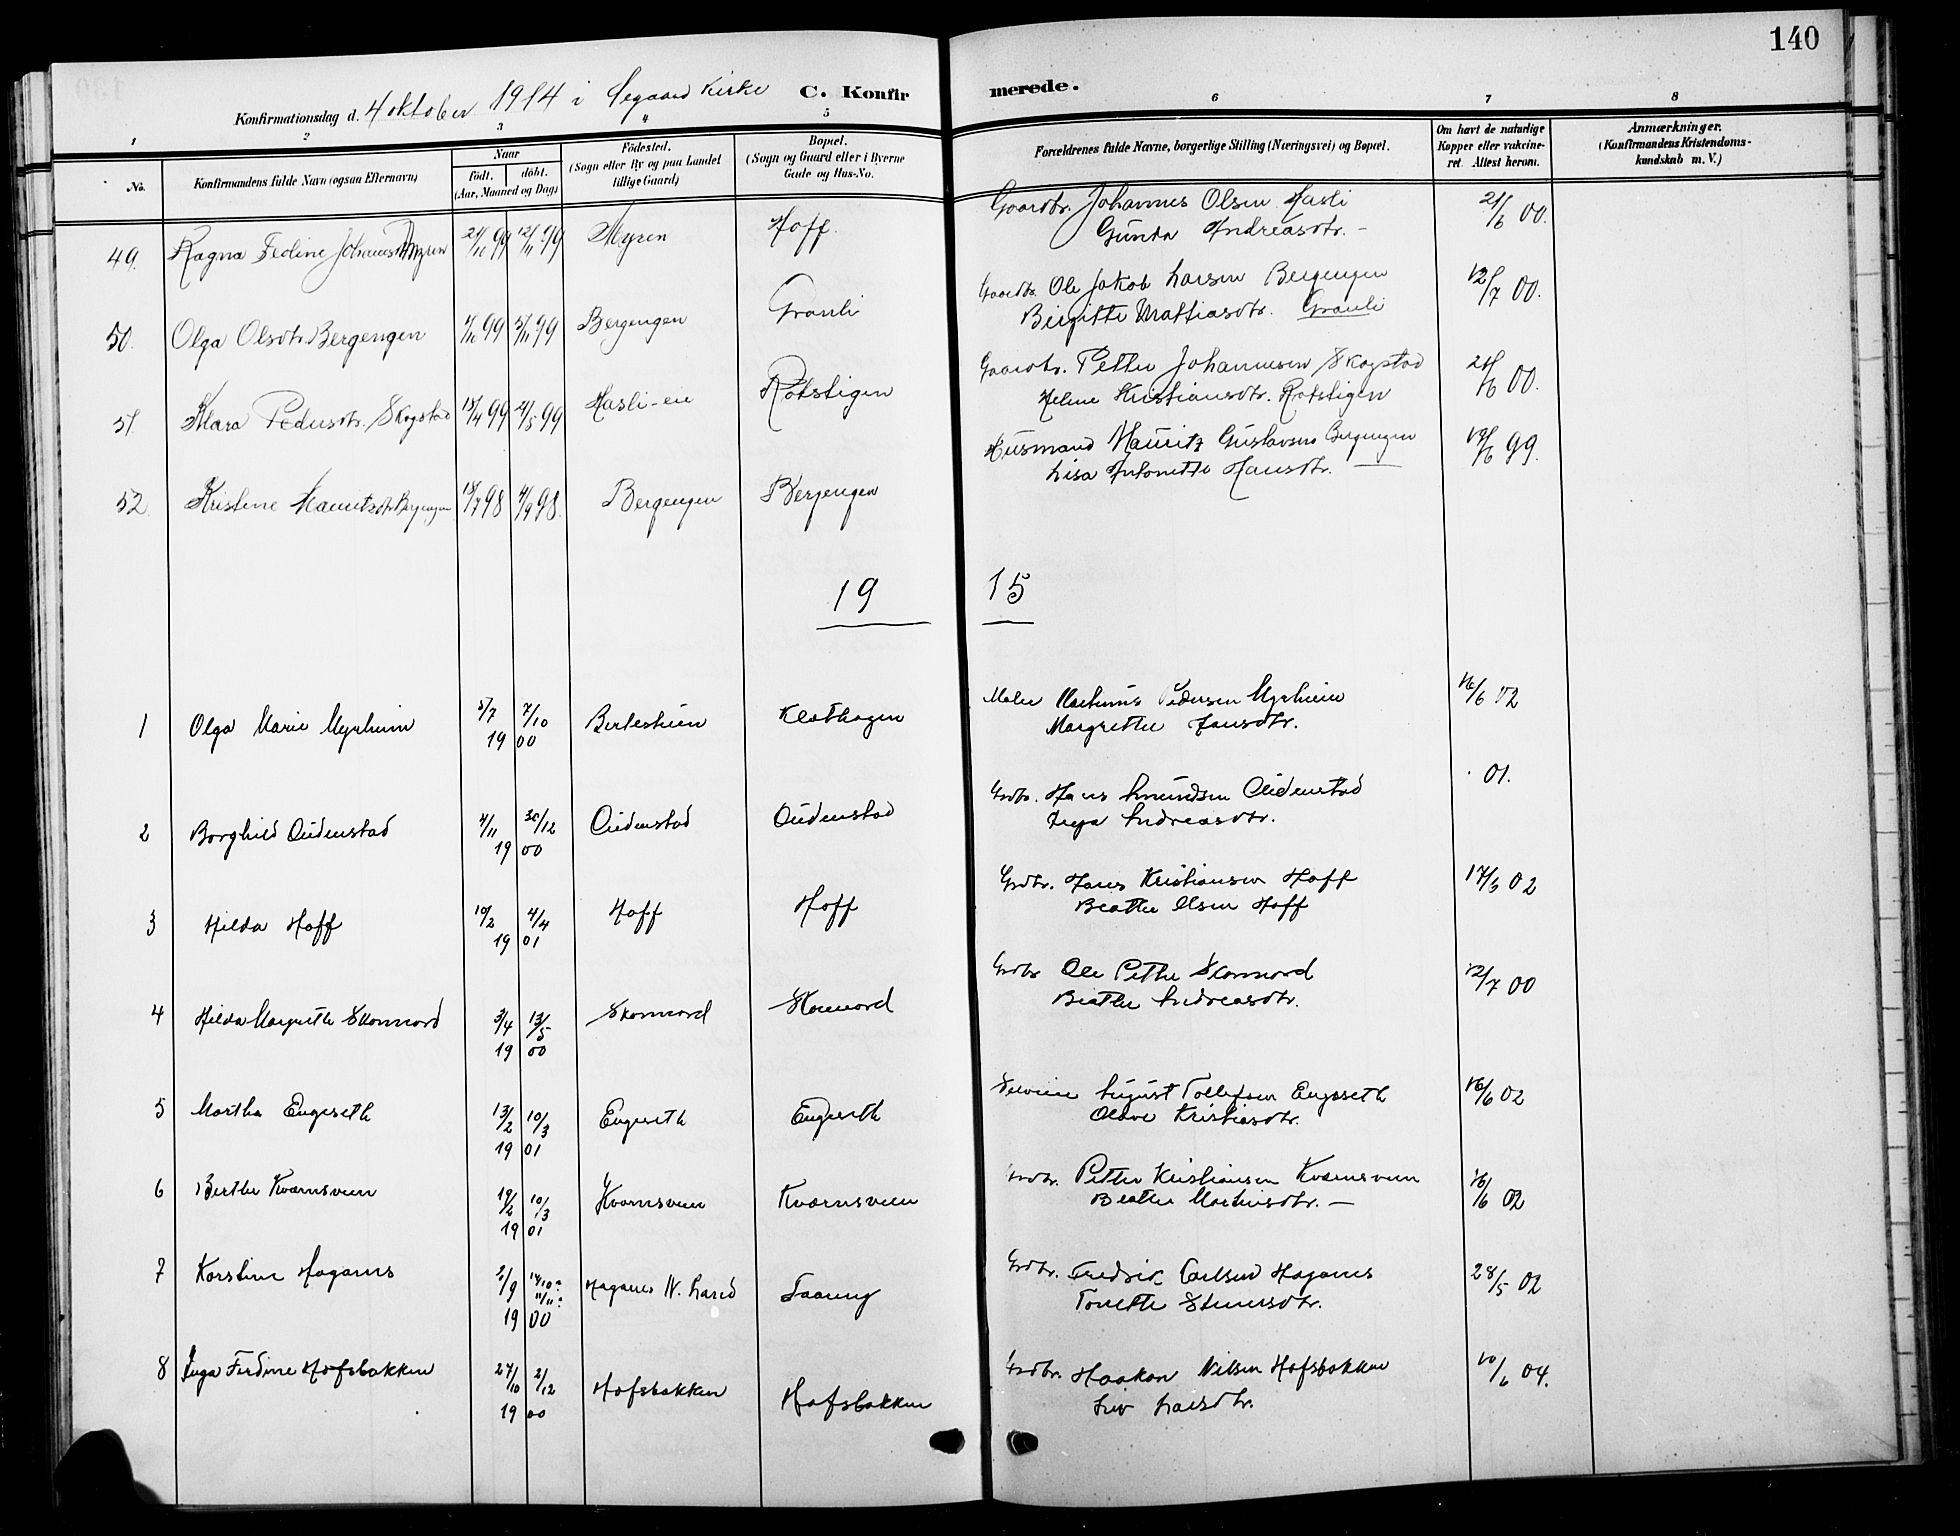 140
Konfirmationsdag d. 4 oktober 1914 i Segaard Kirke C. Konfirmerede.
1 2 3 4 5 6 7 8
No.
Konfirmandens fulde Navn (ogsaa Efternavn)
Naar
født. døbt.
(Aar, Maaned og Dag)
Fødested.
(Sogn eller By og paa Landet
tillige Gaard)
Bopæl.
(Sogn og Gaard eller i Byerne
Gade og Hus-No.
Forældrenes fulde Navne, borgerlige Stilling (Næringsvei) og Bopæl.
Om havt de naturlige
Kopper eller vaccine-
ret. Attest herom.
Anmærkninger.
(Konfirmandens Kristendoms-
kundskab m. V.)
49. Ragna Fedine Johannesdtr. Myren 21/10 99 12/11 99 Myren Hoff. Gaardbr. Johannes Olsen Hasli 21/6 00.
Gunda Andreasdtr. –
50. Olga Olsdtr. Bergengen 99 5/11 99 Bergengen Granli Gaardb. Ole Jakob Larsen Bergengen 12/7 00.
Birgitte Mattiasdtr. Granli
51. Klara Pedersdtr. Skogstad 15/4 99 21/5 99 Hasli-eie Rotstigen Gaardbr. Petter Johannesen Skogstad 21/6 00.
Helene Kristiansdtr. Rotstigen
52. Kristine Mauritzdtr. Bergengen 15/7 98 4/9 98. Bergengen Bergengen Husmand Mauritz Gustavsen Bergengen 19/6 99.
Lisa Antonette Hansdtr. —
19 15
1 Olga Marie Myrheim 5/7 7/10 Klæthagen Maler Martinus Pedersen Myrheim 16/6 02
19 00 Margrethe Jansdtr.
2 Borghild Audenstad 4/11 30/12 Audenstad Audenstad Grdbr. Hans Amundsen Audenstad 01.
19 00 Inga Andreasdtr.
3 Hilda Hoff 10/2 4/4 Hoff Hoff Grdbr. Hans Kristiansen Hoff 17/6 02
19 01 Beathe Olsen Hoff
4 Hilda Margrethe Skonnord 3/4 13/5 Skonnord Skonnord Grdbr Ole Petter Skonnord 12/7 00
19 00 Beathe Andreasdtr.
5 Martha Engeseth 13/2 10/3 Engeseth Engeseth August Tollefsen Engeseth 16/6 02
19 01 Olave Kristiansdtr.
6 Berthe Kværnsveen 19/2 10/3 Kværnsveen Kværnsveen Grdbr. Petter Kristiansen Kværnsveen 16/6 02
19 01 Beathe Martinsdtr. –
7 Karstine Haganes 2/9 14/10 Haganes N. Land Taaning Grdbr. Fredrik Carlsen Haganes 28/5 02
19 00 Tonette Stenersdtr.
8 Inga Ferdine Hofsbakken 27/10 2/12 Hofsbakken Hofsbakken Grdbr. Haakon Nilsen Hofsbakken 10/6 04.
19 00 Liv Larsdtr.